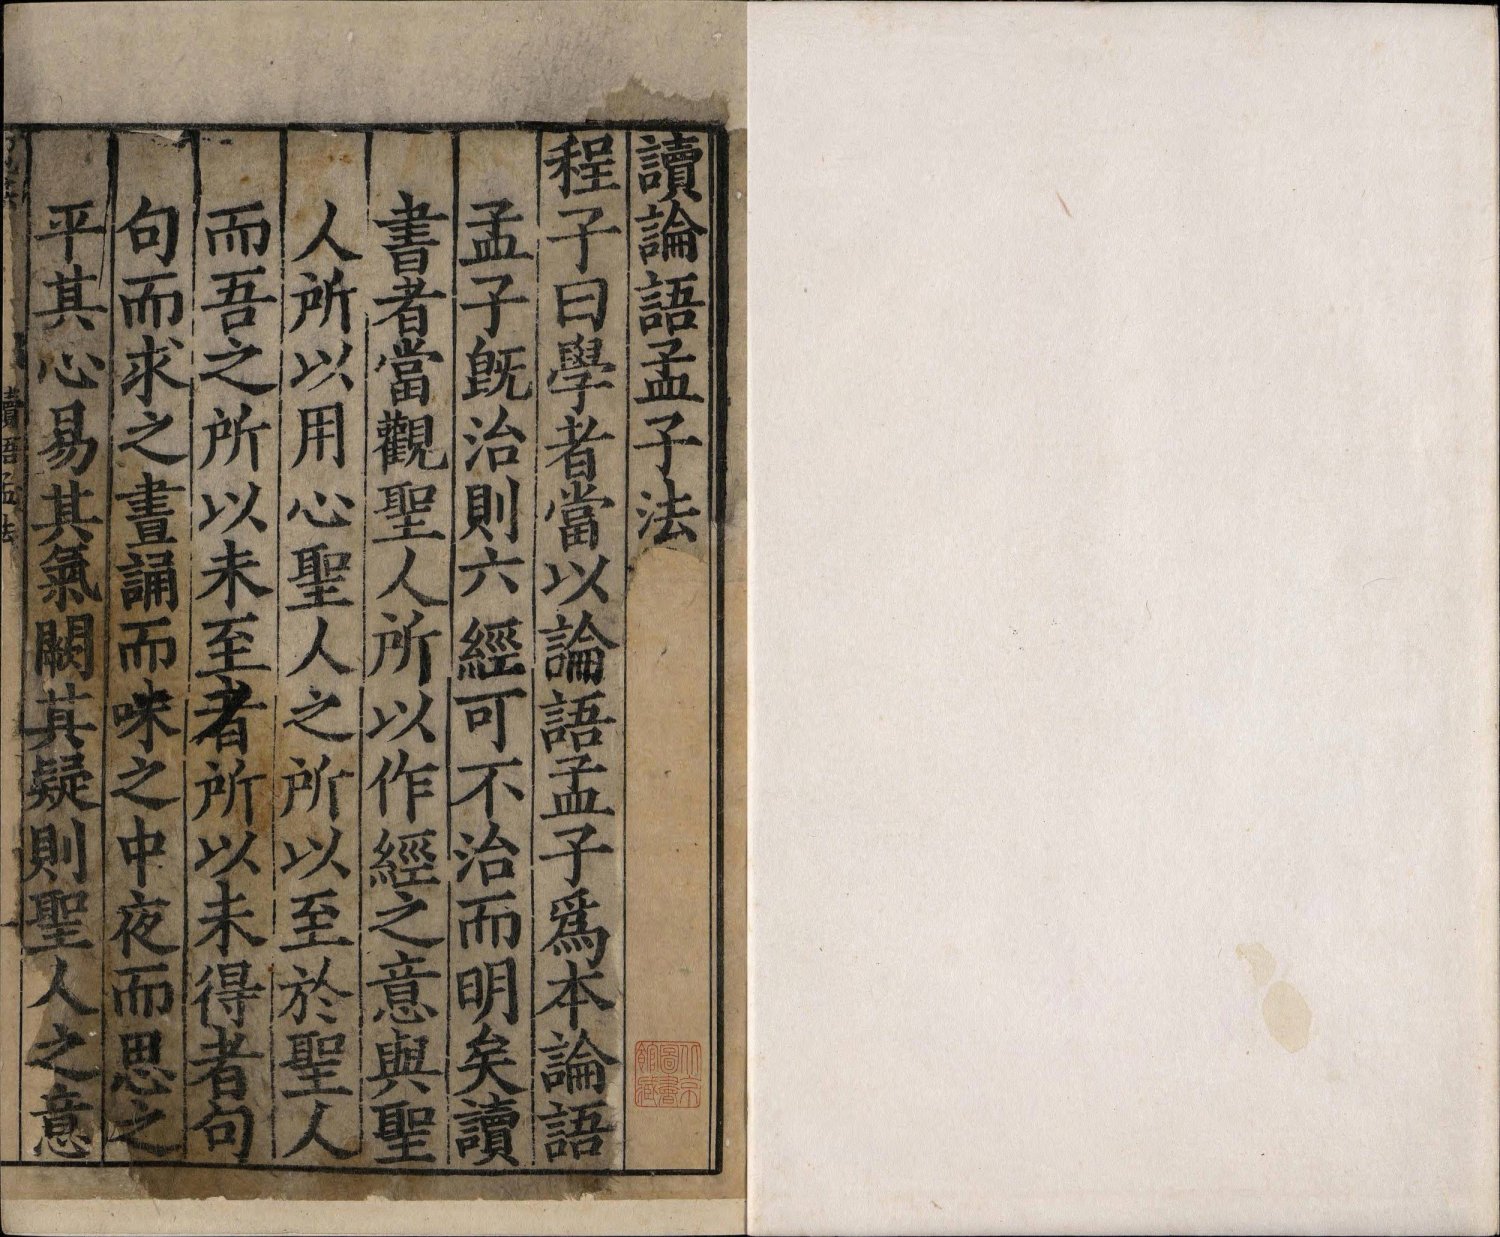 讀論語孟子法
程子曰學者當以論語孟子爲本論語
孟子旣治則六經可不治而明矣讀
書者當觀聖人所以作經之意與聖
人所以用心聖人之所以至於聖人
而吾之所以未至者所以未得者句
句而求之晝誦而味之中夜而思之
平其心易其氣闕其疑則聖人之意
讀語孟法
北京
圖書
館藏